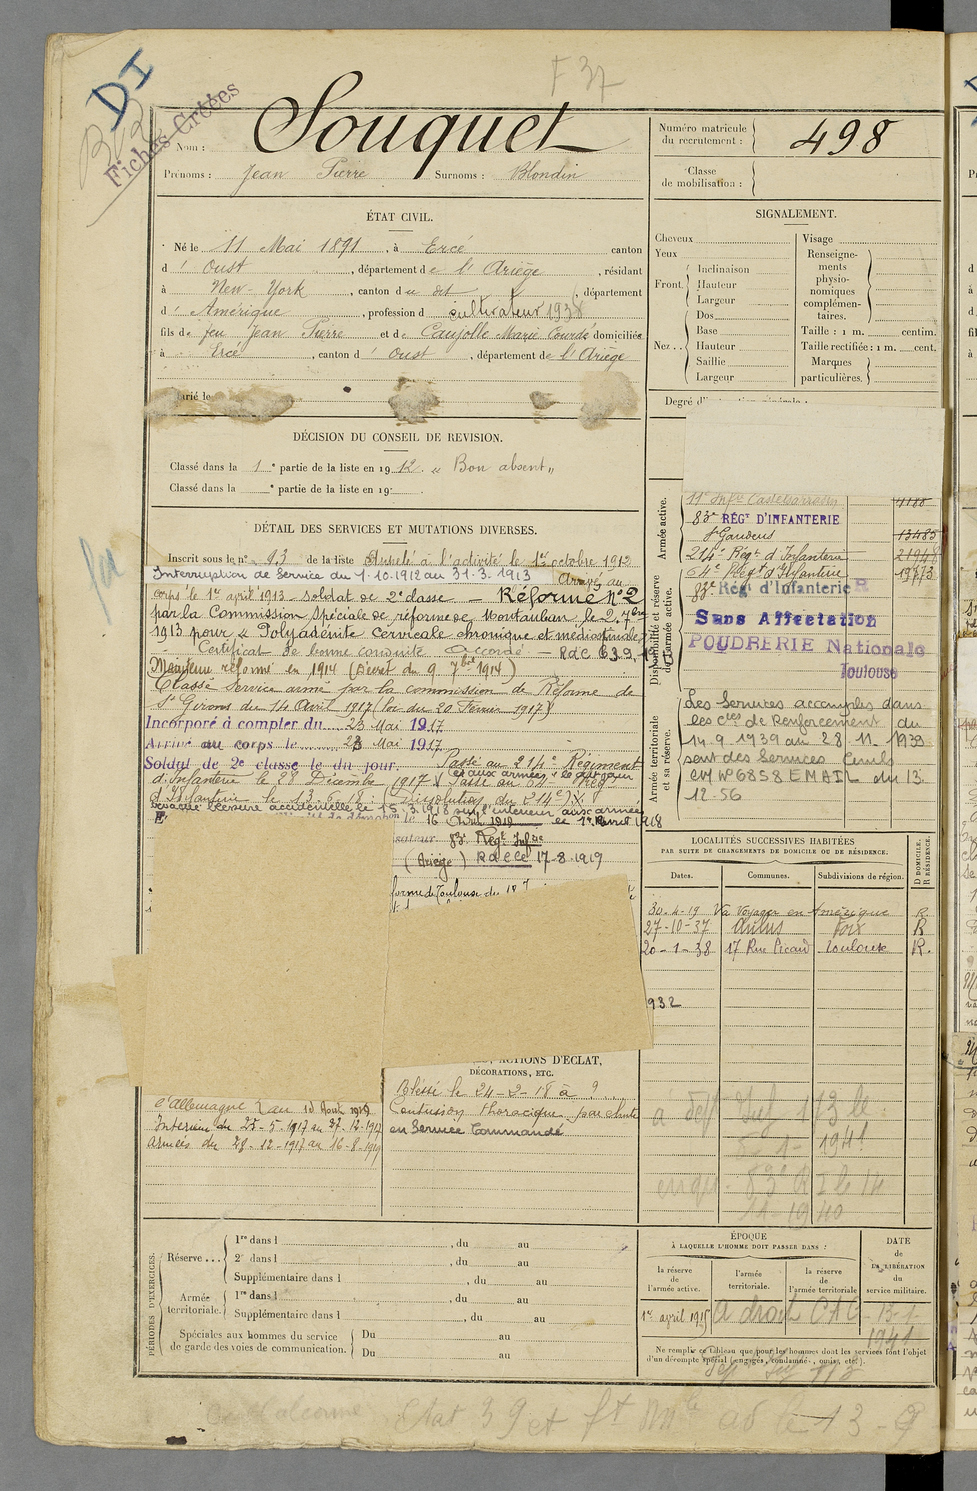 F 37
DI
Fiches Créées
Nom : Souquet
Prénoms : Jean Pierre Surnoms : Blondin
Numéro matricule du recrutement : 498
Classe de mobilisation :
ÉTAT CIVIL.
Né le 11 Mai 1891, à Ercé canton
d' Oust, département de l'Ariège, résidant
à New-York, canton du dt, département
d' Amérique, profession d cultivateur 1938
fils de feu Jean Pierre et de Caujolle Marie Courdé domiciliés
à Ercé, canton d' Oust, département de l'Ariège
arié le
SIGNALEMENT.
Cheveux
Yeux
Front. Inclinaison
Hauteur
Largeur
Nez. Dos
Base
Hauteur
Saillie
Largeur
Visage
Renseignements physionomiques complémentaires.
Taille : 1 m. centim.
Taille rectifiée : 1 m. cent.
Marques particulières.
DÉCISION DU CONSEIL DE REVISION.
Classé dans la 1e partie de la liste en 1912. « Bon absent »
Classé dans la e partie de la liste en 19
DÉTAIL DES SERVICES ET MUTATIONS DIVERSES.
Inscrit sous le n° 93 de la liste à l'activité le 1er octobre 1912
Interruption de Service du 1.10.1912 au 31.3.1913 Arrivé au
corps le 1er avril 1913 - soldat de 2e classe - Réformé N°2
par la Commission Spéciale de réforme de Montauban le 2.7bre
1913 pour « Polyadénite cervicale chronique et médiastinale »
Certificat de bonne conduite Accordé - RdC
Maintenu réformé en 1914 (Décret du 9 7bre 1914)
Classé service armé par la commission de Réforme de
St Girons du 14 Avril 1917 (loi du 20 Février 1917)
Incorporé à compter du 23 Mai 1917
Arrivé au corps le 23 Mai 1917
Soldat de 2e classe le du jour. Passé au 214e Régiment
d'Infanterie le 28 Décembre 1917 Passé au 64e Rég
d'Infanterie le 13-6-18 (Dissolution du 214e)
blessure accidentelle le 15.3.1918
le 16 Avril 1919
83e Régt Infrie
(Ariège) 17-8-1919
forme de Toulouse du
Armée active.
Disponibilité et réserve de l'armée active.
Armée territoriale et sa réserve.
11e Infrie Castelsarrasin
83e RÉGT D'INFANTERIE
St Gaudens 13485
214e Régt d'Infanterie
64e Régt d'Infanterie
83e Régt d'Infanterie
Sans Affectation
POUDRERIE Nationale
Toulouse
Les Services accomplis dans
les Cies de Renforcement du
14.9.1939 au 28.11.1939
sont des Services Civils
CM N°6858 EMAIL du 13.
12.56
LOCALITÉS SUCCESSIVES HABITÉES
PAR SUITE DE CHANGEMENTS DE DOMICILE OU DE RÉSIDENCE.
Dates. Communes. Subdivisions de région. D DOMICILE. R RÉSIDENCE.
30-4-19 Va Voyager en Amérique R
27-10-37 Aulus Foix R
20-1-38 17 Rue Picard Toulouse R.
932
ACTIONS D'ÉCLAT,
DÉCORATIONS, ETC.
Blessé le 24-2-18 à ?
Contusion thoracique par chute
en Service Commandé
c/Allemagne
Intérieur du 23-5-1917 au 27-12-1917
Armées du 28-12-1917 au 16-8-1919
1941
83e R I le 14
11-1940
PÉRIODES D'EXERCICES.
Réserve... 1re dans l , du au
2e dans l , du au
Supplémentaire dans l , du au
Armée territoriale. 1re dans l , du au
Supplémentaire dans l , du au
Spéciales aux hommes du service de garde des voies de communication. Du au
Du au
ÉPOQUE
À LAQUELLE L'HOMME DOIT PASSER DANS :
la réserve de l'armée active. l'armée territoriale. la réserve de l'armée territoriale
DATE de LA LIBÉRATION du service militaire.
1er avril 1915 A droit CAC 13-1-
1941
Ne remplir ce tableau que pour les hommes dont les services font l'objet
d'un décompte spécial (engagés, condamnés, omis, etc.).